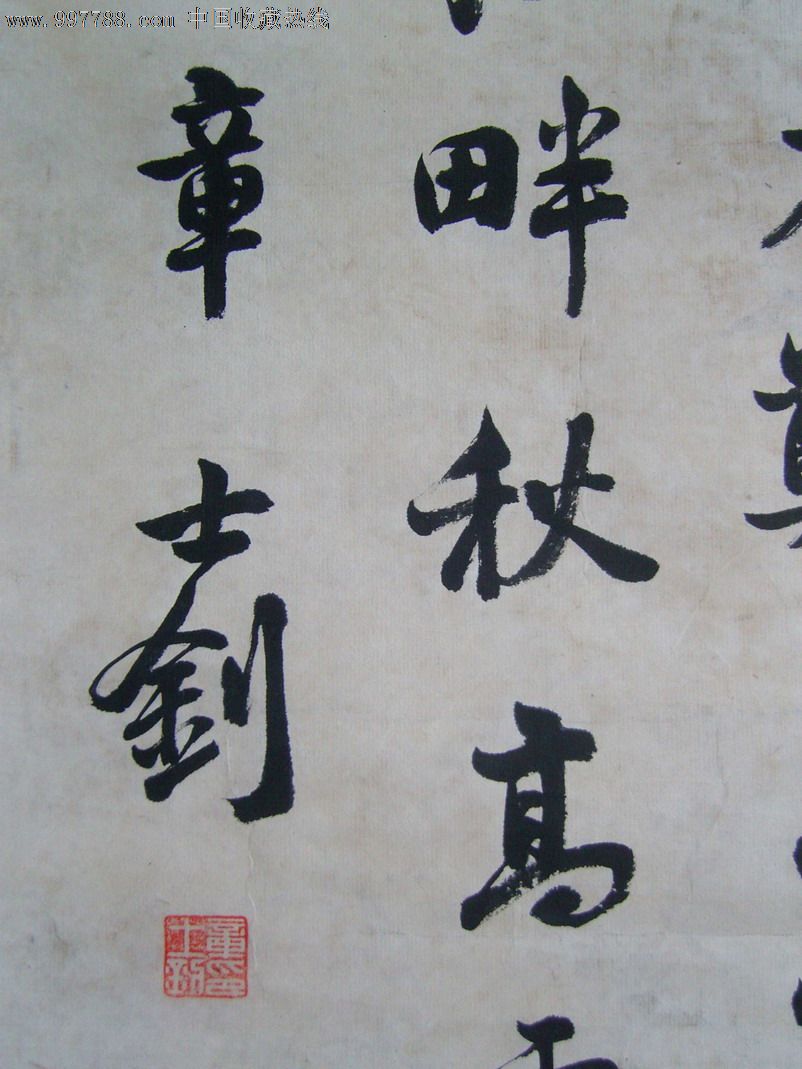 www.997788.com 中国收藏热线
畔秋高
章士釗
章士釗印